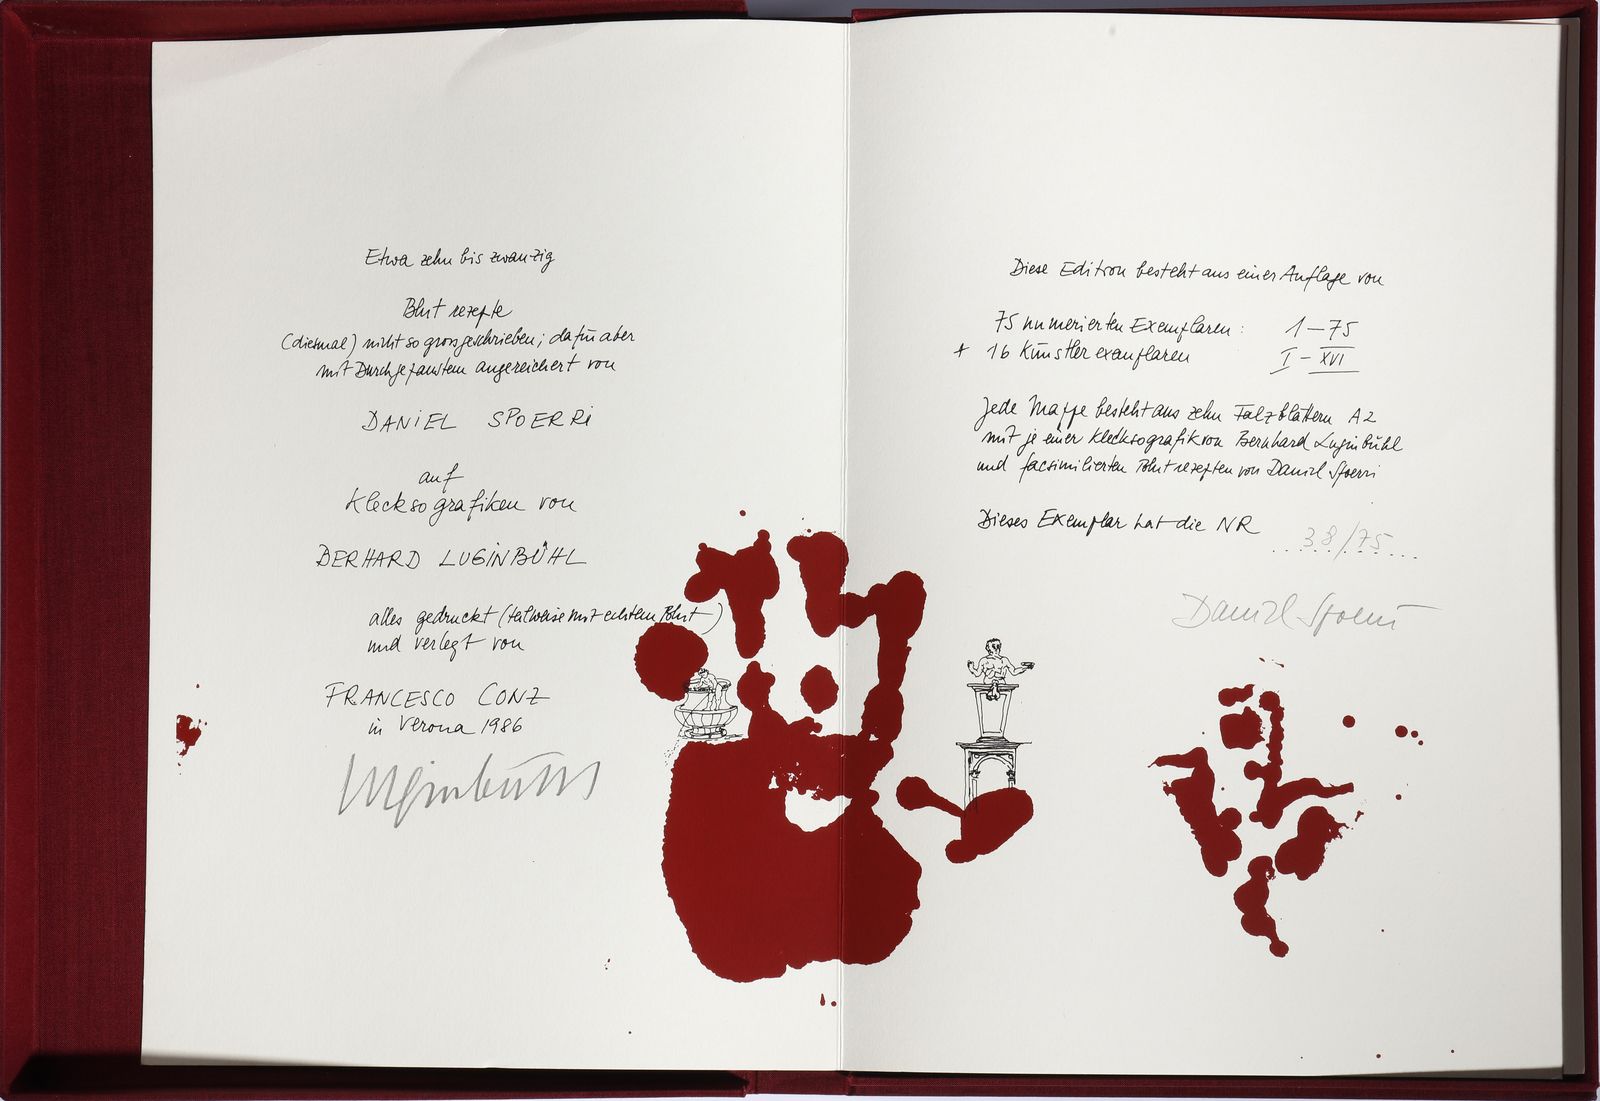 Etwa zehn bis zwanzig
Blut rezepte
(diesmal) nicht so grossgeschrieben; dafür aber
mit Durchgepaustem angereichert von
DANIEL SPOERRI
auf
Klecksografiken von
BERHARD LUGINBÜHL
alles gedruckt (teilweise mit echtem Blut)
und verlegt von
FRANCESCO CONZ
in Verona 1986
Luginbühl
Diese Edition besteht aus einer Auflage von
75 numerierten Exemplaren: 1-75
+ 16 Künstler exemplaren I-XVI
Jede Mappe besteht aus zehn Falzblättern A2
mit je einer Klecksografik von Bernhard Luginbühl
und facsimilierten Blut rezepten von Daniel Spoerri
Dieses Exemplar hat die NR 38/75
Daniel Spoerri